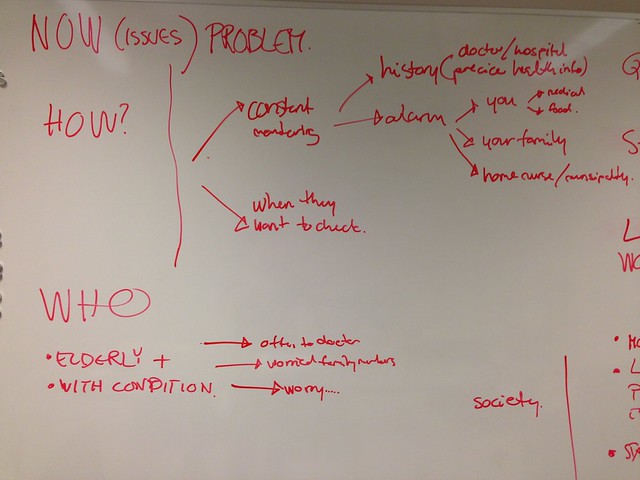 NOW (ISSUES) PROBLEM.
HOW?
constant
monitoring
history (
doctor/hospital
precice health info)
alarm
you
medical
food.
your family
home nurse/municipality.
when they
want to check.
WHO
• ELDERLY +
• WITH CONDITION.
often to doctor
worried family members
worry.....
society.
L
P